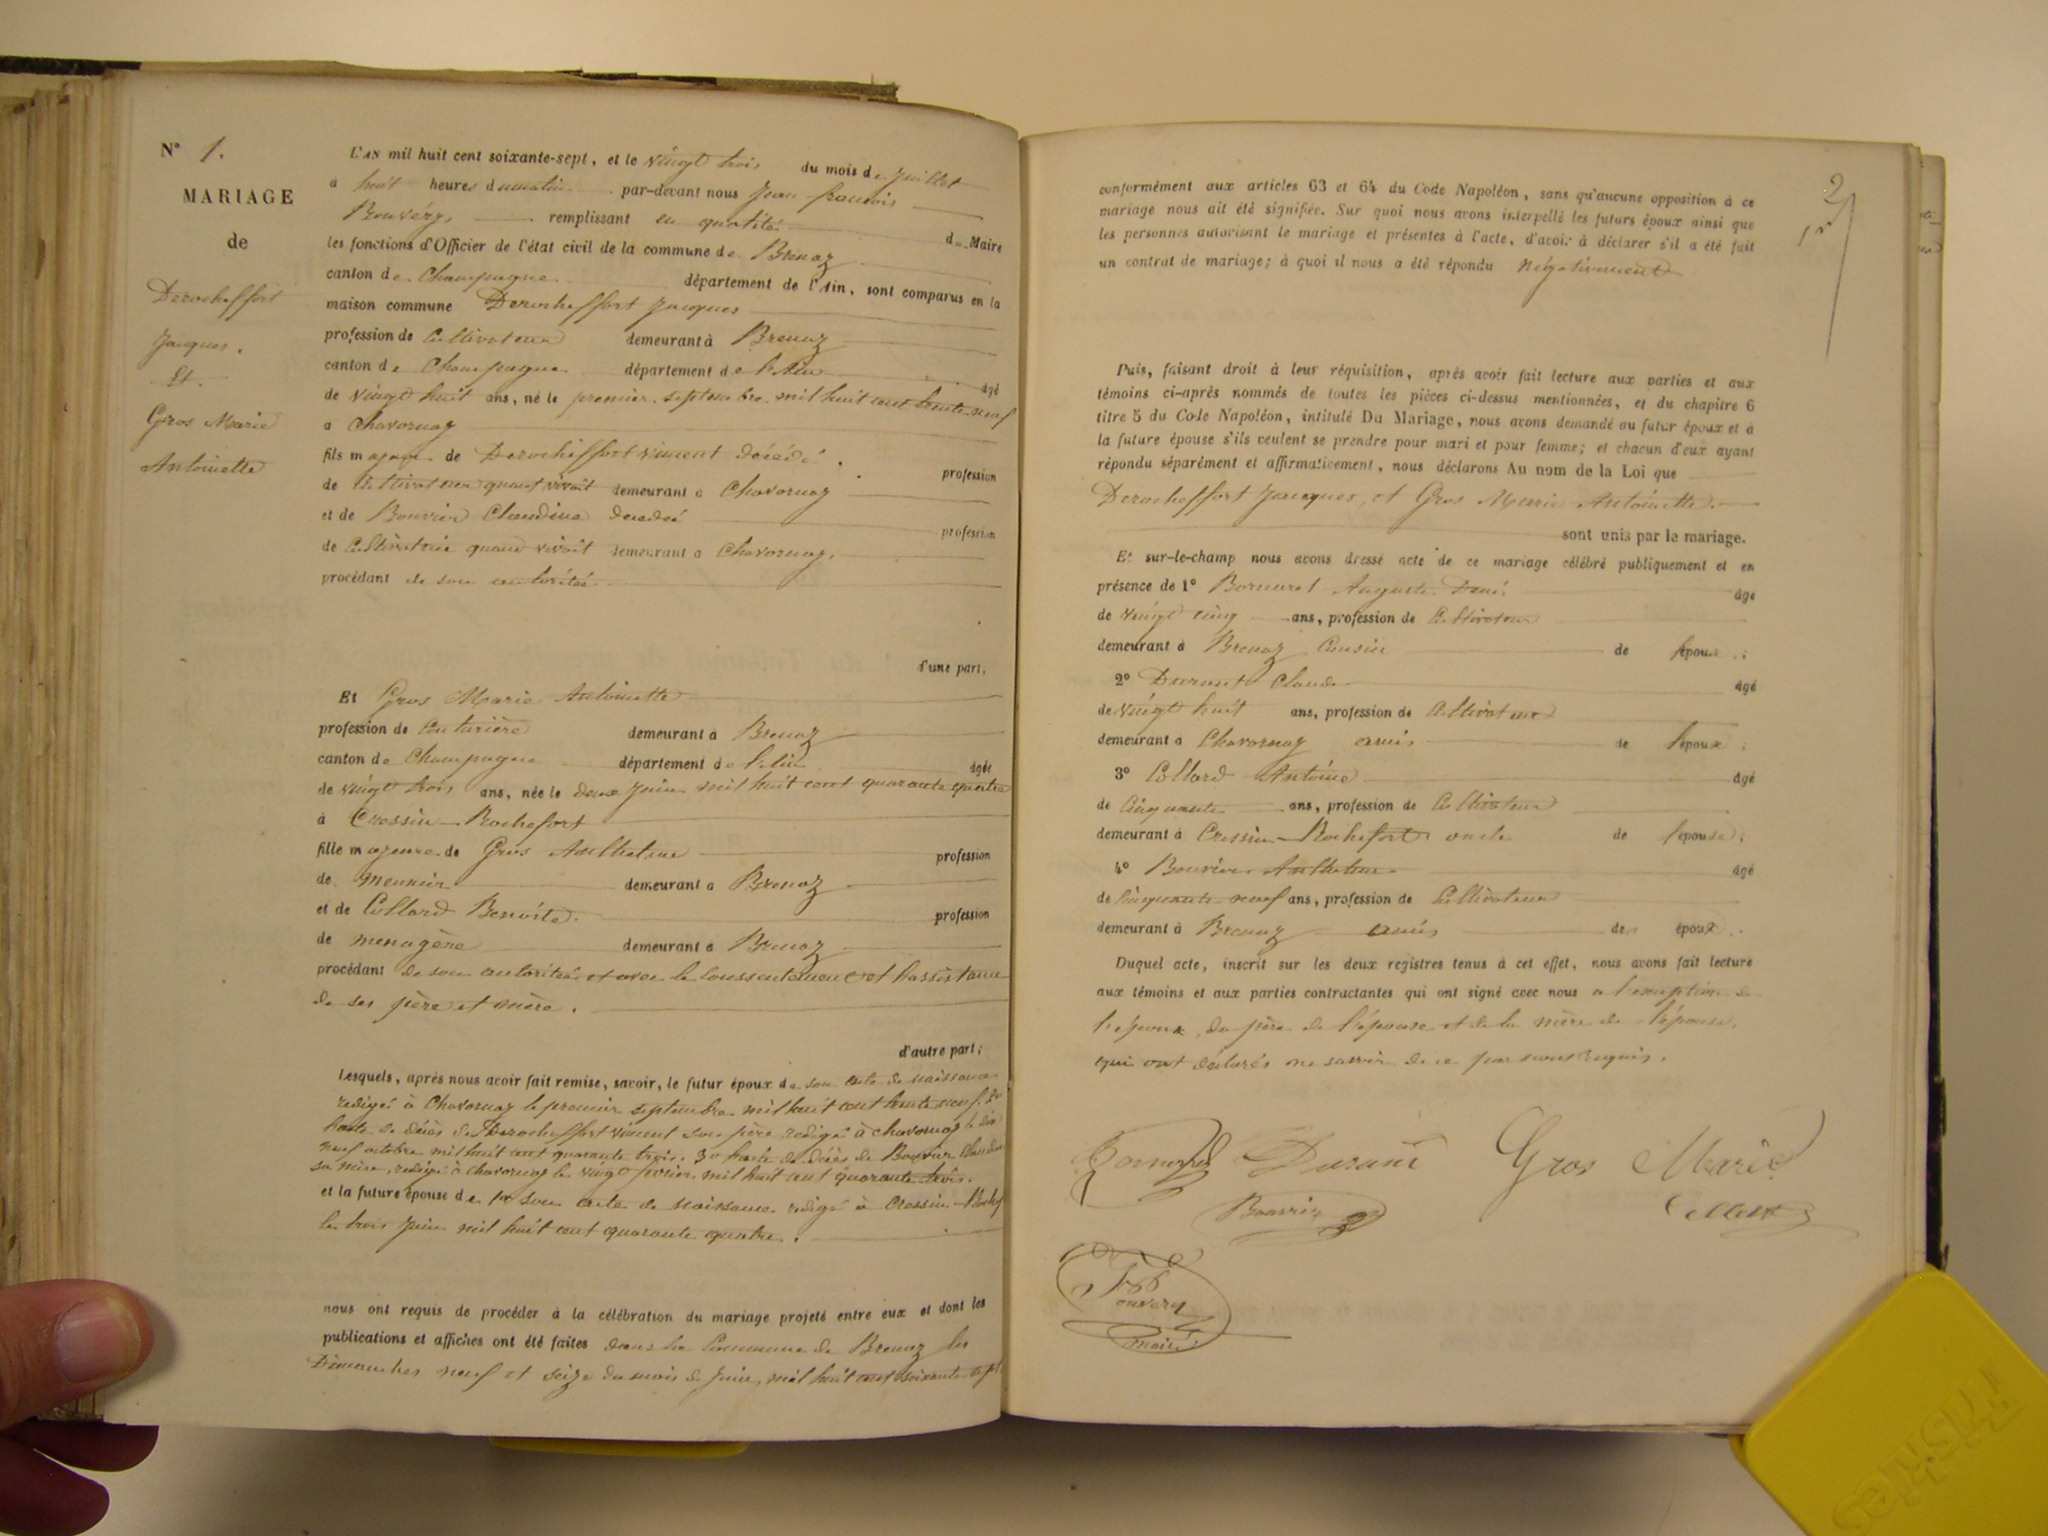 N° 1.
MARIAGE
de
Derocheffort
Jacques.
Et.
Gros Marie
Antoinette
L'AN mil huit cent soixante-sept, et le vingt trois du mois de Juillet
a huit heures du matin par-devant nous Jean françois
Bouvéry, remplissant en qualité de Maire
les fonctions d'Officier de l'état civil de la commune de Brenaz
canton de Champagne département de l'Ain, sont comparus en la
maison commune Derocheffort Jacques
profession de Cultivateur demeurant à Brenaz
canton de Champagne département de l'Ain âgé
de vingt huit ans, né le premier septembre mil huit cent trente neuf
a Chavornay
fils majeur de Derocheffort vincent décédé. profession
de Cultivateur quand vivait demeurant a Chavornay
et de Bouvier Claudine decedeé profession
de Cultivatrice quand vivait demeurant a Chavornay,
procédant de son autorité
d'une part,
Et Gros Marie Antoinette
profession de Couturière demeurant a Brenaz
canton de Champagne département de l'Ain âgée
de vingt trois ans, née le deux juin mil huit cent quarante quatre
à Cressin-Rochefort
fille majeure de Gros Anthelme profession
de meunier demeurant a Brenaz
et de Collard Benoîte. profession
de menagère demeurant a Brenaz
procédant de son autorité et avec le Consentement et l'assistance
de ses père et mère.
d'autre part;
Lesquels, après nous avoir fait remise, savoir, le futur époux de son acte de naissance
redigé à Chavornay le premier septembre mil huit cent trente neuf. 2°
l'acte de décès de Derocheffort vincent son père redigé à chavornay le dix
neuf octobre mil huit cent quarante trois. 3° l'acte de décès de Bouvier Claudine
sa mère, redigé à chavornay le vingt février mil huit cent quarante trois.
et la future épouse de 1° son acte de naissance redigé à Cressin-Rochef
le trois juin mil huit cent quarante quatre.
nous ont requis de procéder à la célébration du mariage projeté entre eux et dont les
publications et affiches ont été faites dans la Commune de Brenaz les
Dimanches neuf et seize du mois de juin, mil huit cent soixante sept
2
conformément aux articles 63 et 64 du Code Napoléon, sans qu'aucune opposition à ce
mariage nous ait été signifiée. Sur quoi nous avons interpellé les futurs époux ainsi que
les personnes autorisant le mariage et présentes à l'acte, d'avoir à déclarer s'il a été fait
un contrat de mariage; à quoi il nous a été répondu négativement
Puis, faisant droit à leur réquisition, après avoir fait lecture aux parties et aux
témoins ci-après nommés de toutes les pièces ci-dessus mentionnées, et du chapitre 6
titre 5 du Code Napoléon, intitulé Du Mariage, nous avons demandé au futur époux et à
la future épouse s'ils veulent se prendre pour mari et pour femme; et chacun d'eux ayant
répondu séparément et affirmativement, nous déclarons Au nom de la Loi que
Derocheffort Jacques, et Gros Marie Antoinette
sont unis par le mariage.
Et sur-le-champ nous avons dressé acte de ce mariage célébré publiquement et en
présence de 1° Bornarel Auguste âgé
de vingt cinq ans, profession de Cultivateur
demeurant à Brenaz Cousin de l'épouse;
2° Durant Claude âgé
de vingt huit ans, profession de Cultivateur
demeurant a Chavornay amis de l'époux;
3° Collard Antoine âgé
de Cinquante ans, profession de Cultivateur
demeurant à Cressin-Rochefort oncle de l'épouse;
4° Bouvier Anthelme âgé
de Cinquante neuf ans, profession de Cultivateur
demeurant à Brenaz amis des époux.
Duquel acte, inscrit sur les deux registres tenus à cet effet, nous avons fait lecture
aux témoins et aux parties contractantes qui ont signé avec nous a l'exception de
l'époux, du père de l'épouse et de la mère de l'épouse,
qui ont déclarés ne savoir de ce par nous requis.
Bornarel Durand Gros Marie
Bouvier Collard
Bouvery
maire